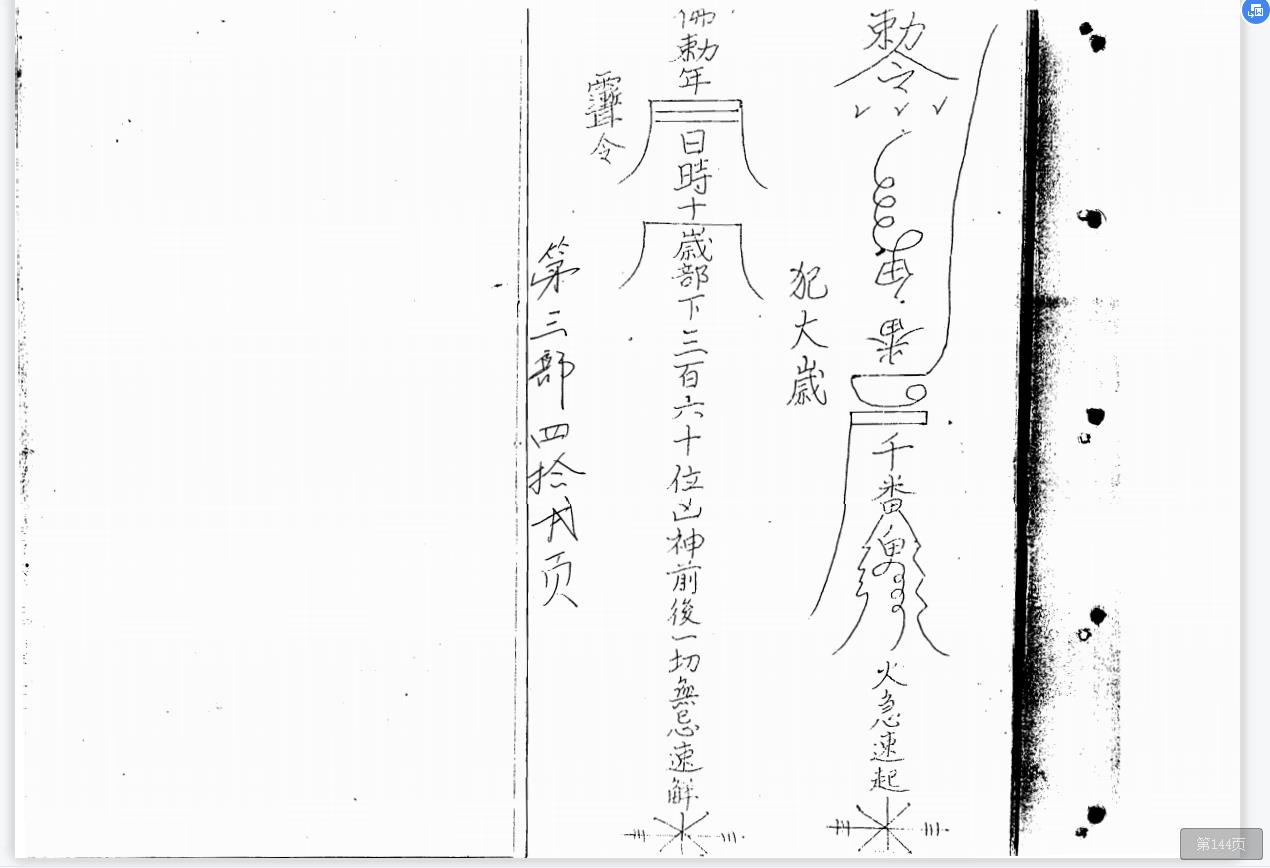 勅令
千番
火急速起
犯大歲
佛勅年
日時十歲部下三百六十位凶神前後一切無忌速解
靈令
第三部四拾弍页
第144页